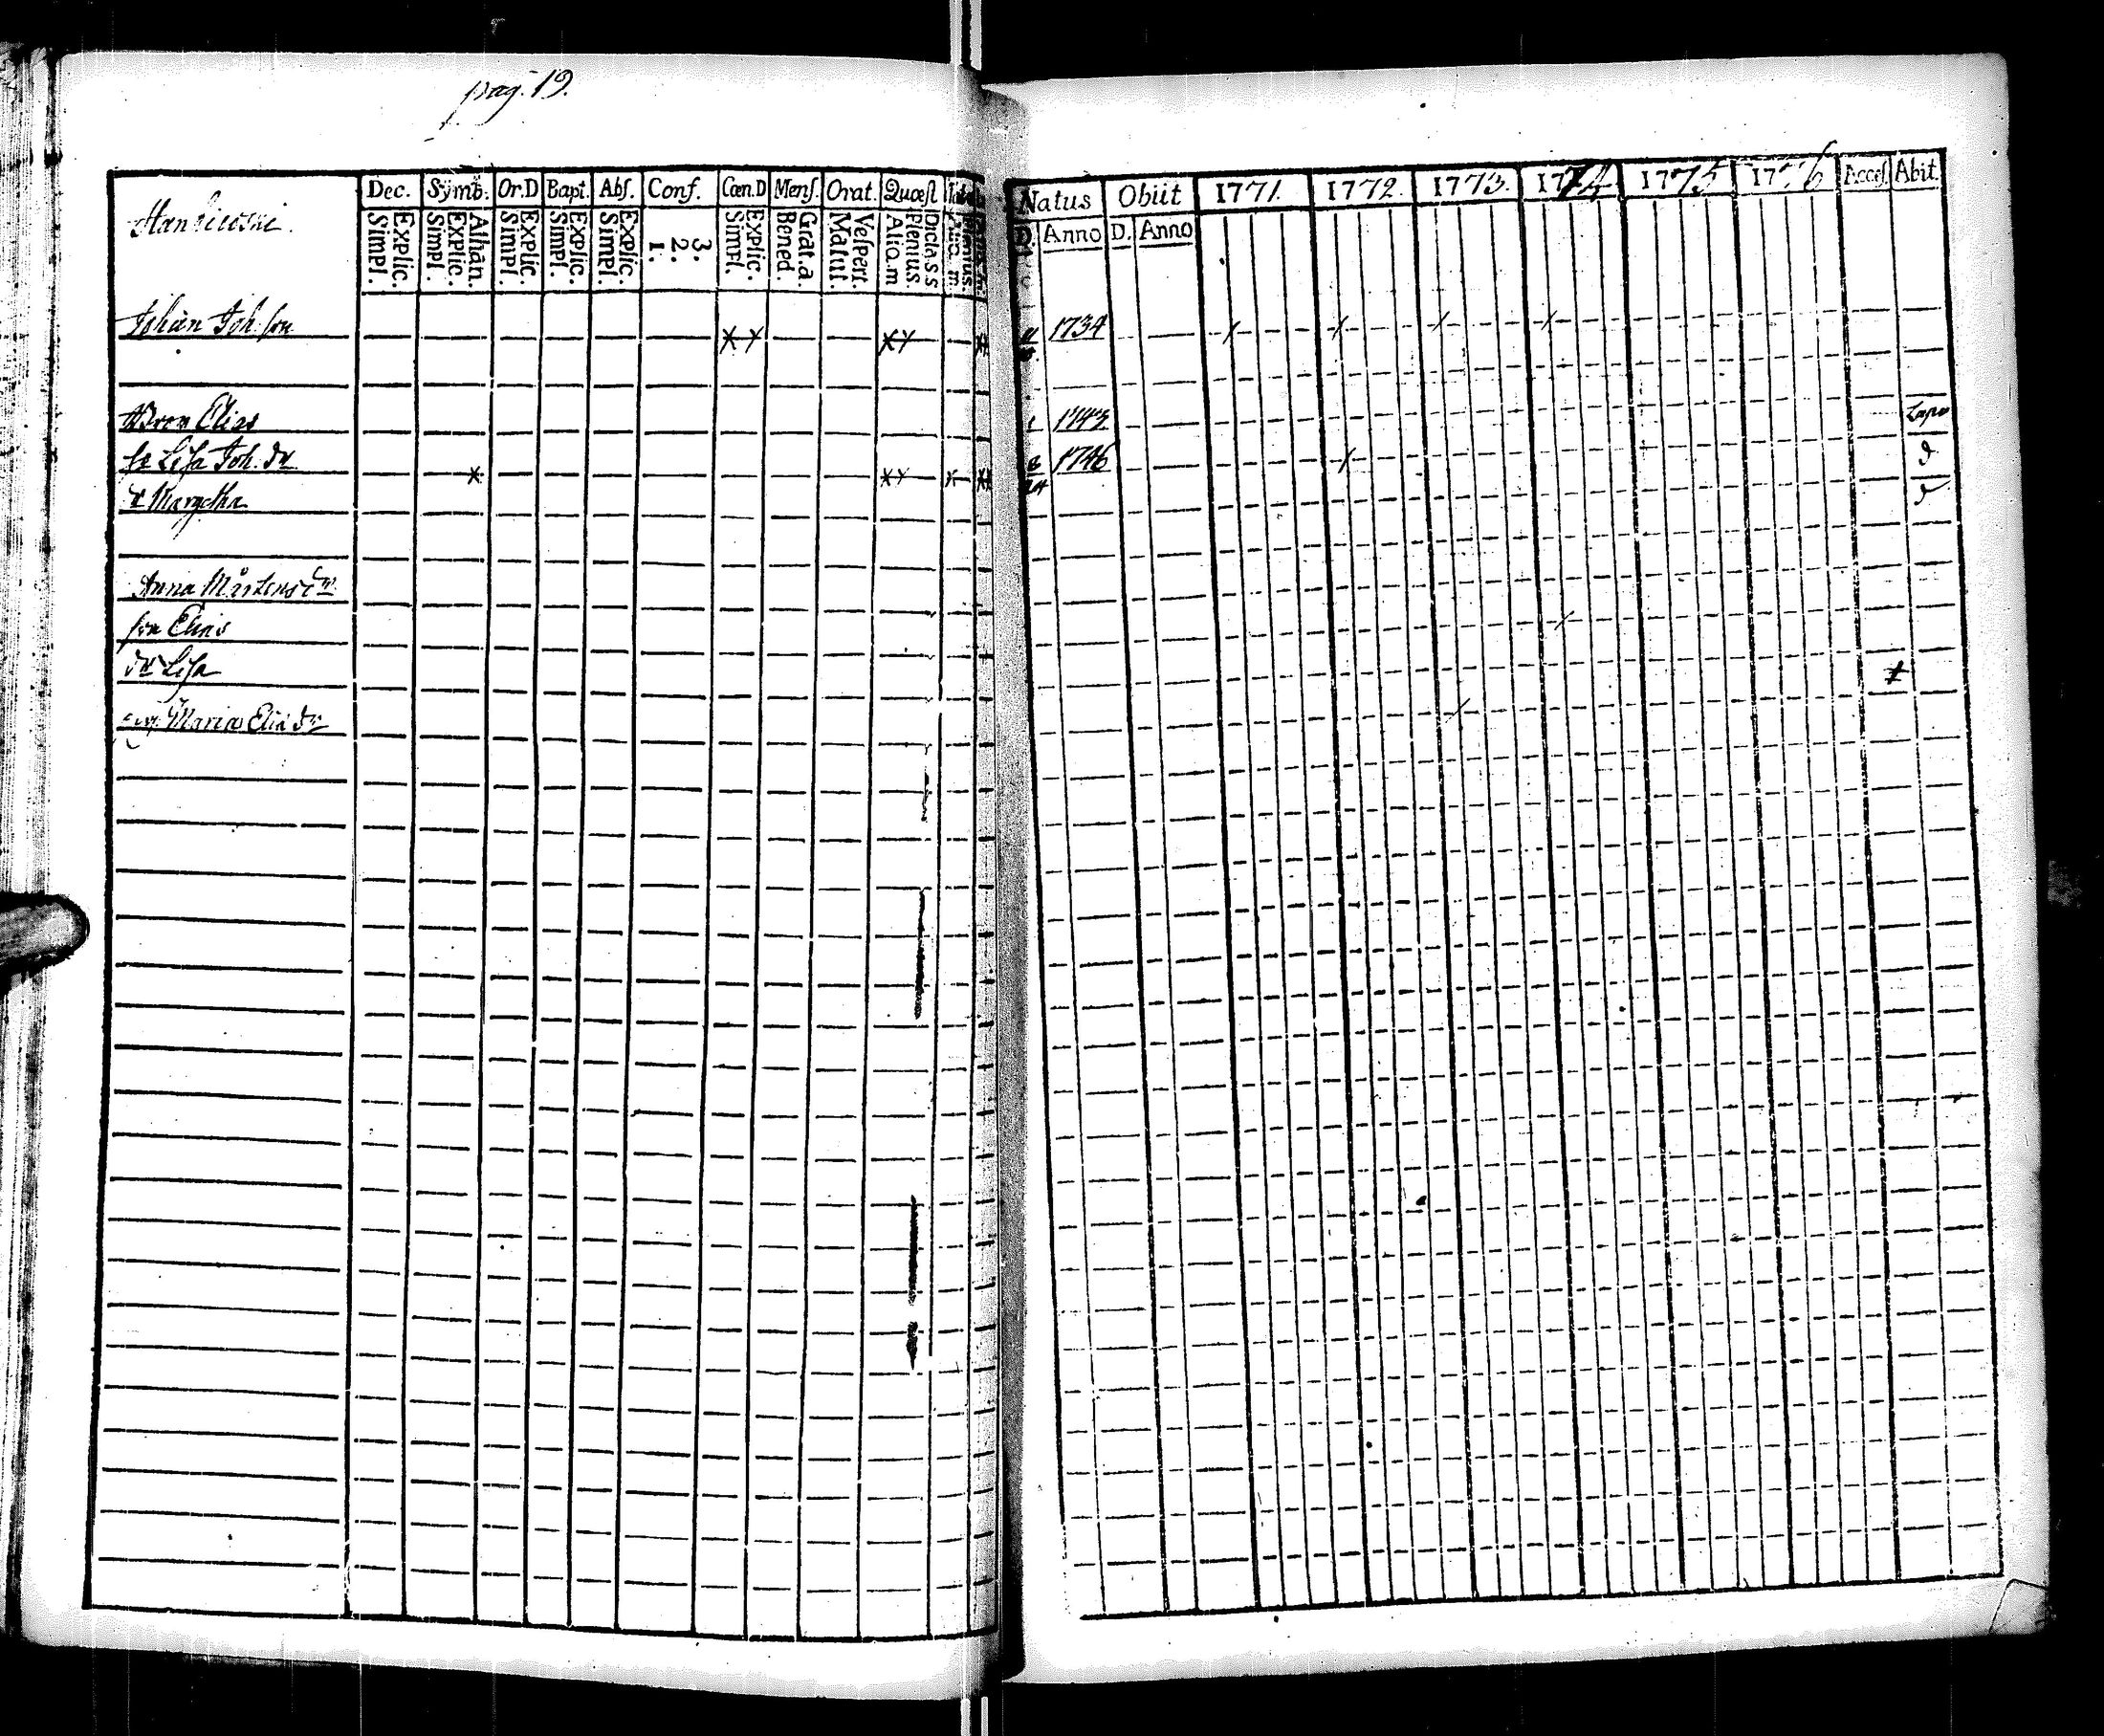 pag. 19.
Dec. Symb. Or.D Bapt. Abs. Conf. Cœn.D Mens. Orat. Quæst
Explic. Simpl. Athan. Explic. Simpl. Explic. Simpl. Explic. Simpl. Explic. Simpl. 3. 2. 1. Explic. Simpl. Grat.a Bened. Vespert. Matut. Dicta.s.s Plenius. Alio.m
Natus Obiit 1771. 1772. 1773. 1774 1775 1776 Access. Abit.
D. Anno D. Anno
Johan Joh. son 1734
Elias 1743
Lisa Joh. dr 1746
dr Margetha
Anna Mårtens dr
son Elias
dr Lisa
Maria Elia dr